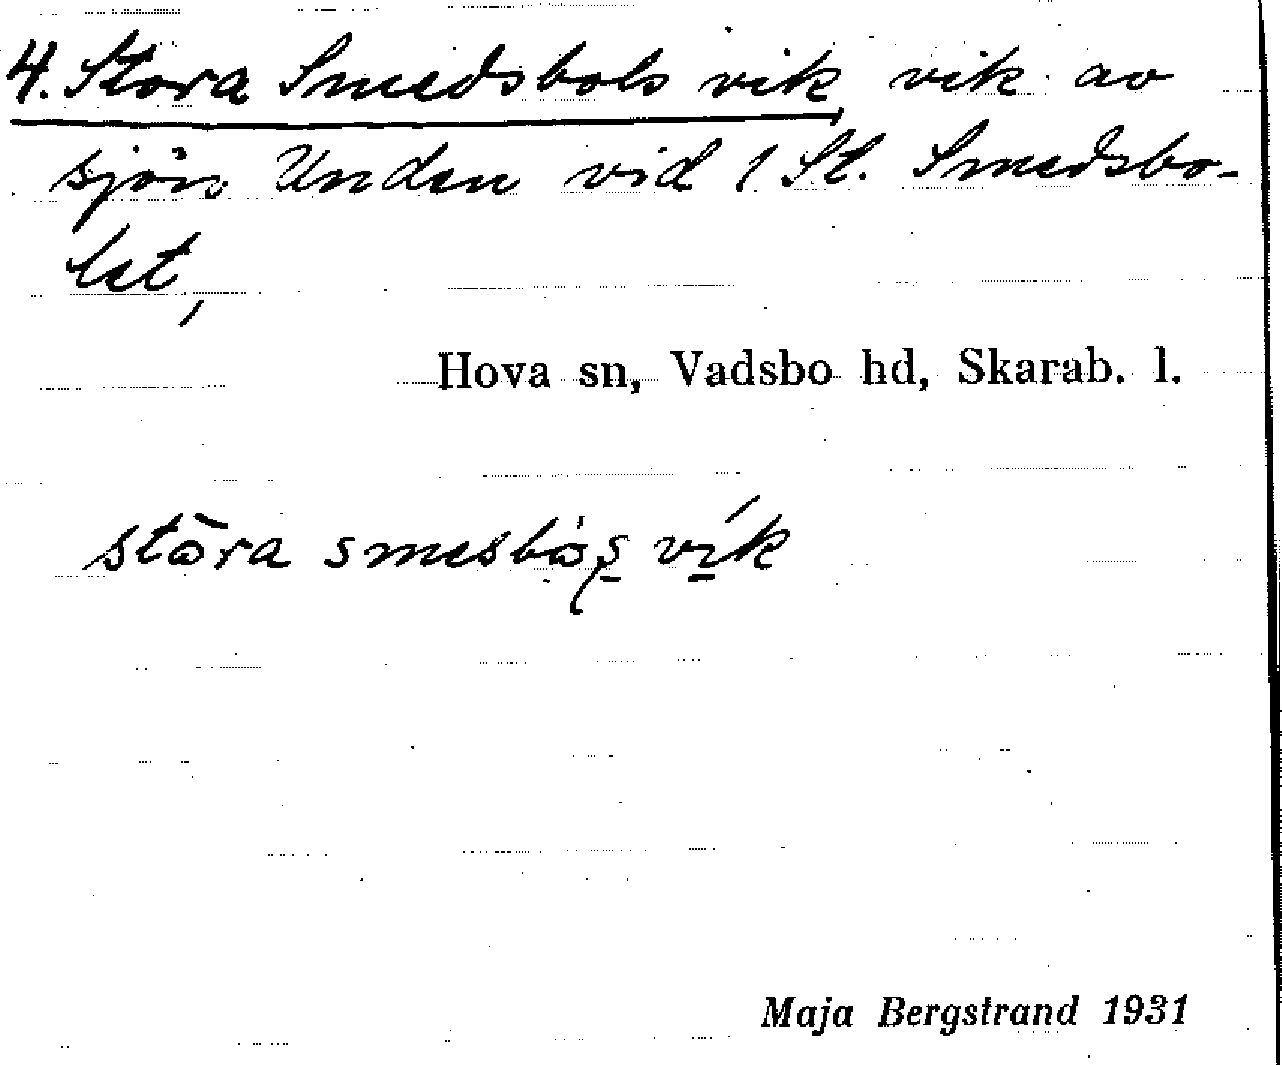 4. Stora Smedsbols vik, vik av
sjön Unden vid 1 St. Smedsbo-
let,
Hova sn, Vadsbo hd, Skarab. l.
stōra vík
Maja Bergstrand 1931